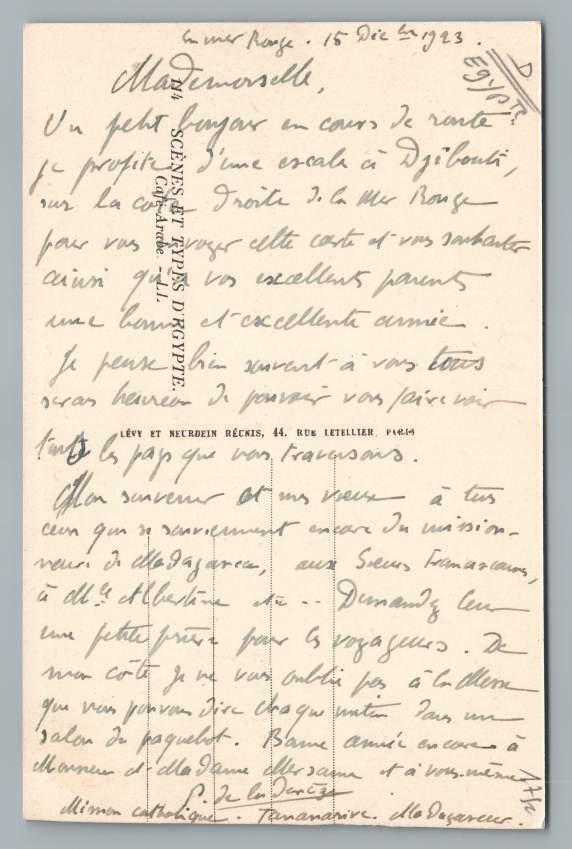 En mer Rouge. 15 Décbre 1923.
D
Egypte
Mademoiselle,
Un petit bonjour en cours de route
je profite d'une escale à Djibouti,
sur la côte droite de la Mer Rouge
pour vous envoyer cette carte et vous souhaiter
ainsi qu'à vos excellents parents
une bonne et excellente année.
Je pense bien souvent à vous tous
serais heureux de pouvoir vous faire voir
tous les pays que nous traversons.
Mon souvenir et mes vœux à tous
ceux qui se souviennent encore du mission-
naire de Madagascar, aux Sœurs Franciscaines,
à Mlle Albertine etc -- Demandez leur
une petite prière pour les voyageurs. De
mon côté je ne vous oublie pas à la Messe
que nous pouvons dire chaque matin dans un
salon du paquebot. Bonne année encore à
Monsieur et Madame et à vous-même
P. de la
Mission catholique. Tananarive. Madagascar.
114 SCÈNES ET TYPES D'EGYPTE.
Café Arabe. - LL.
LÉVY ET NEURDEIN RÉUNIS, 44, RUE LETELLIER, PARIS